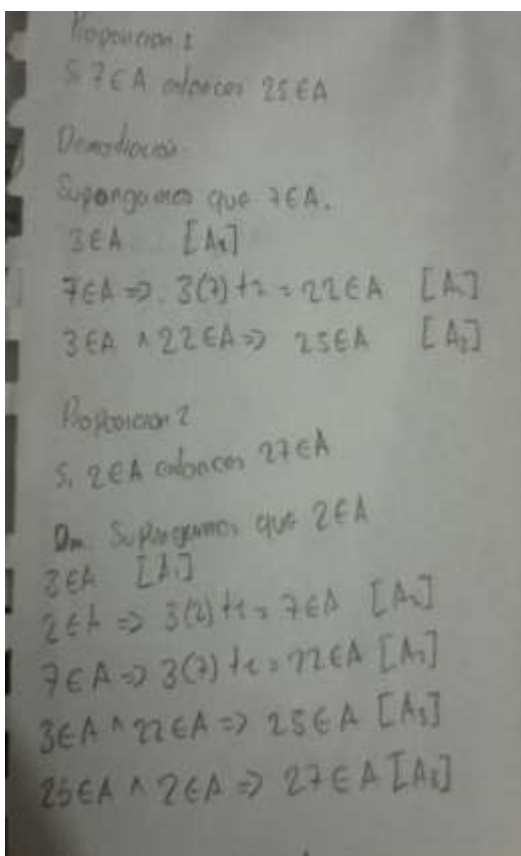 Proposicion 1
Si 7 ∈ A entonces 25 ∈ A
Demostración
Supongamos que 7 ∈ A.
3 ∈ A [A1]
7 ∈ A => 3(7)+1 = 22 ∈ A [A2]
3 ∈ A ∧ 22 ∈ A => 25 ∈ A [A3]
Proposicion 2
Si 2 ∈ A entonces 27 ∈ A
Dm. Supongamos que 2 ∈ A
3 ∈ A [A1]
2 ∈ A => 3(2)+1 = 7 ∈ A [A2]
7 ∈ A => 3(7)+1 = 22 ∈ A [A2]
3 ∈ A ∧ 22 ∈ A => 25 ∈ A [A3]
25 ∈ A ∧ 2 ∈ A => 27 ∈ A [A3]